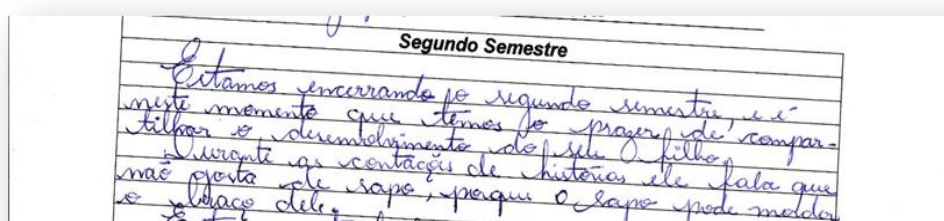 Segundo Semestre
Estamos encerrando o segundo semestre, e é
neste momento que temos o prazer de compar-
tilhar o desenvolvimento do seu filho.
Durante as contações de histórias ele fala que
não gosta de sapo, porque o sapo pode morder
o braço dele.